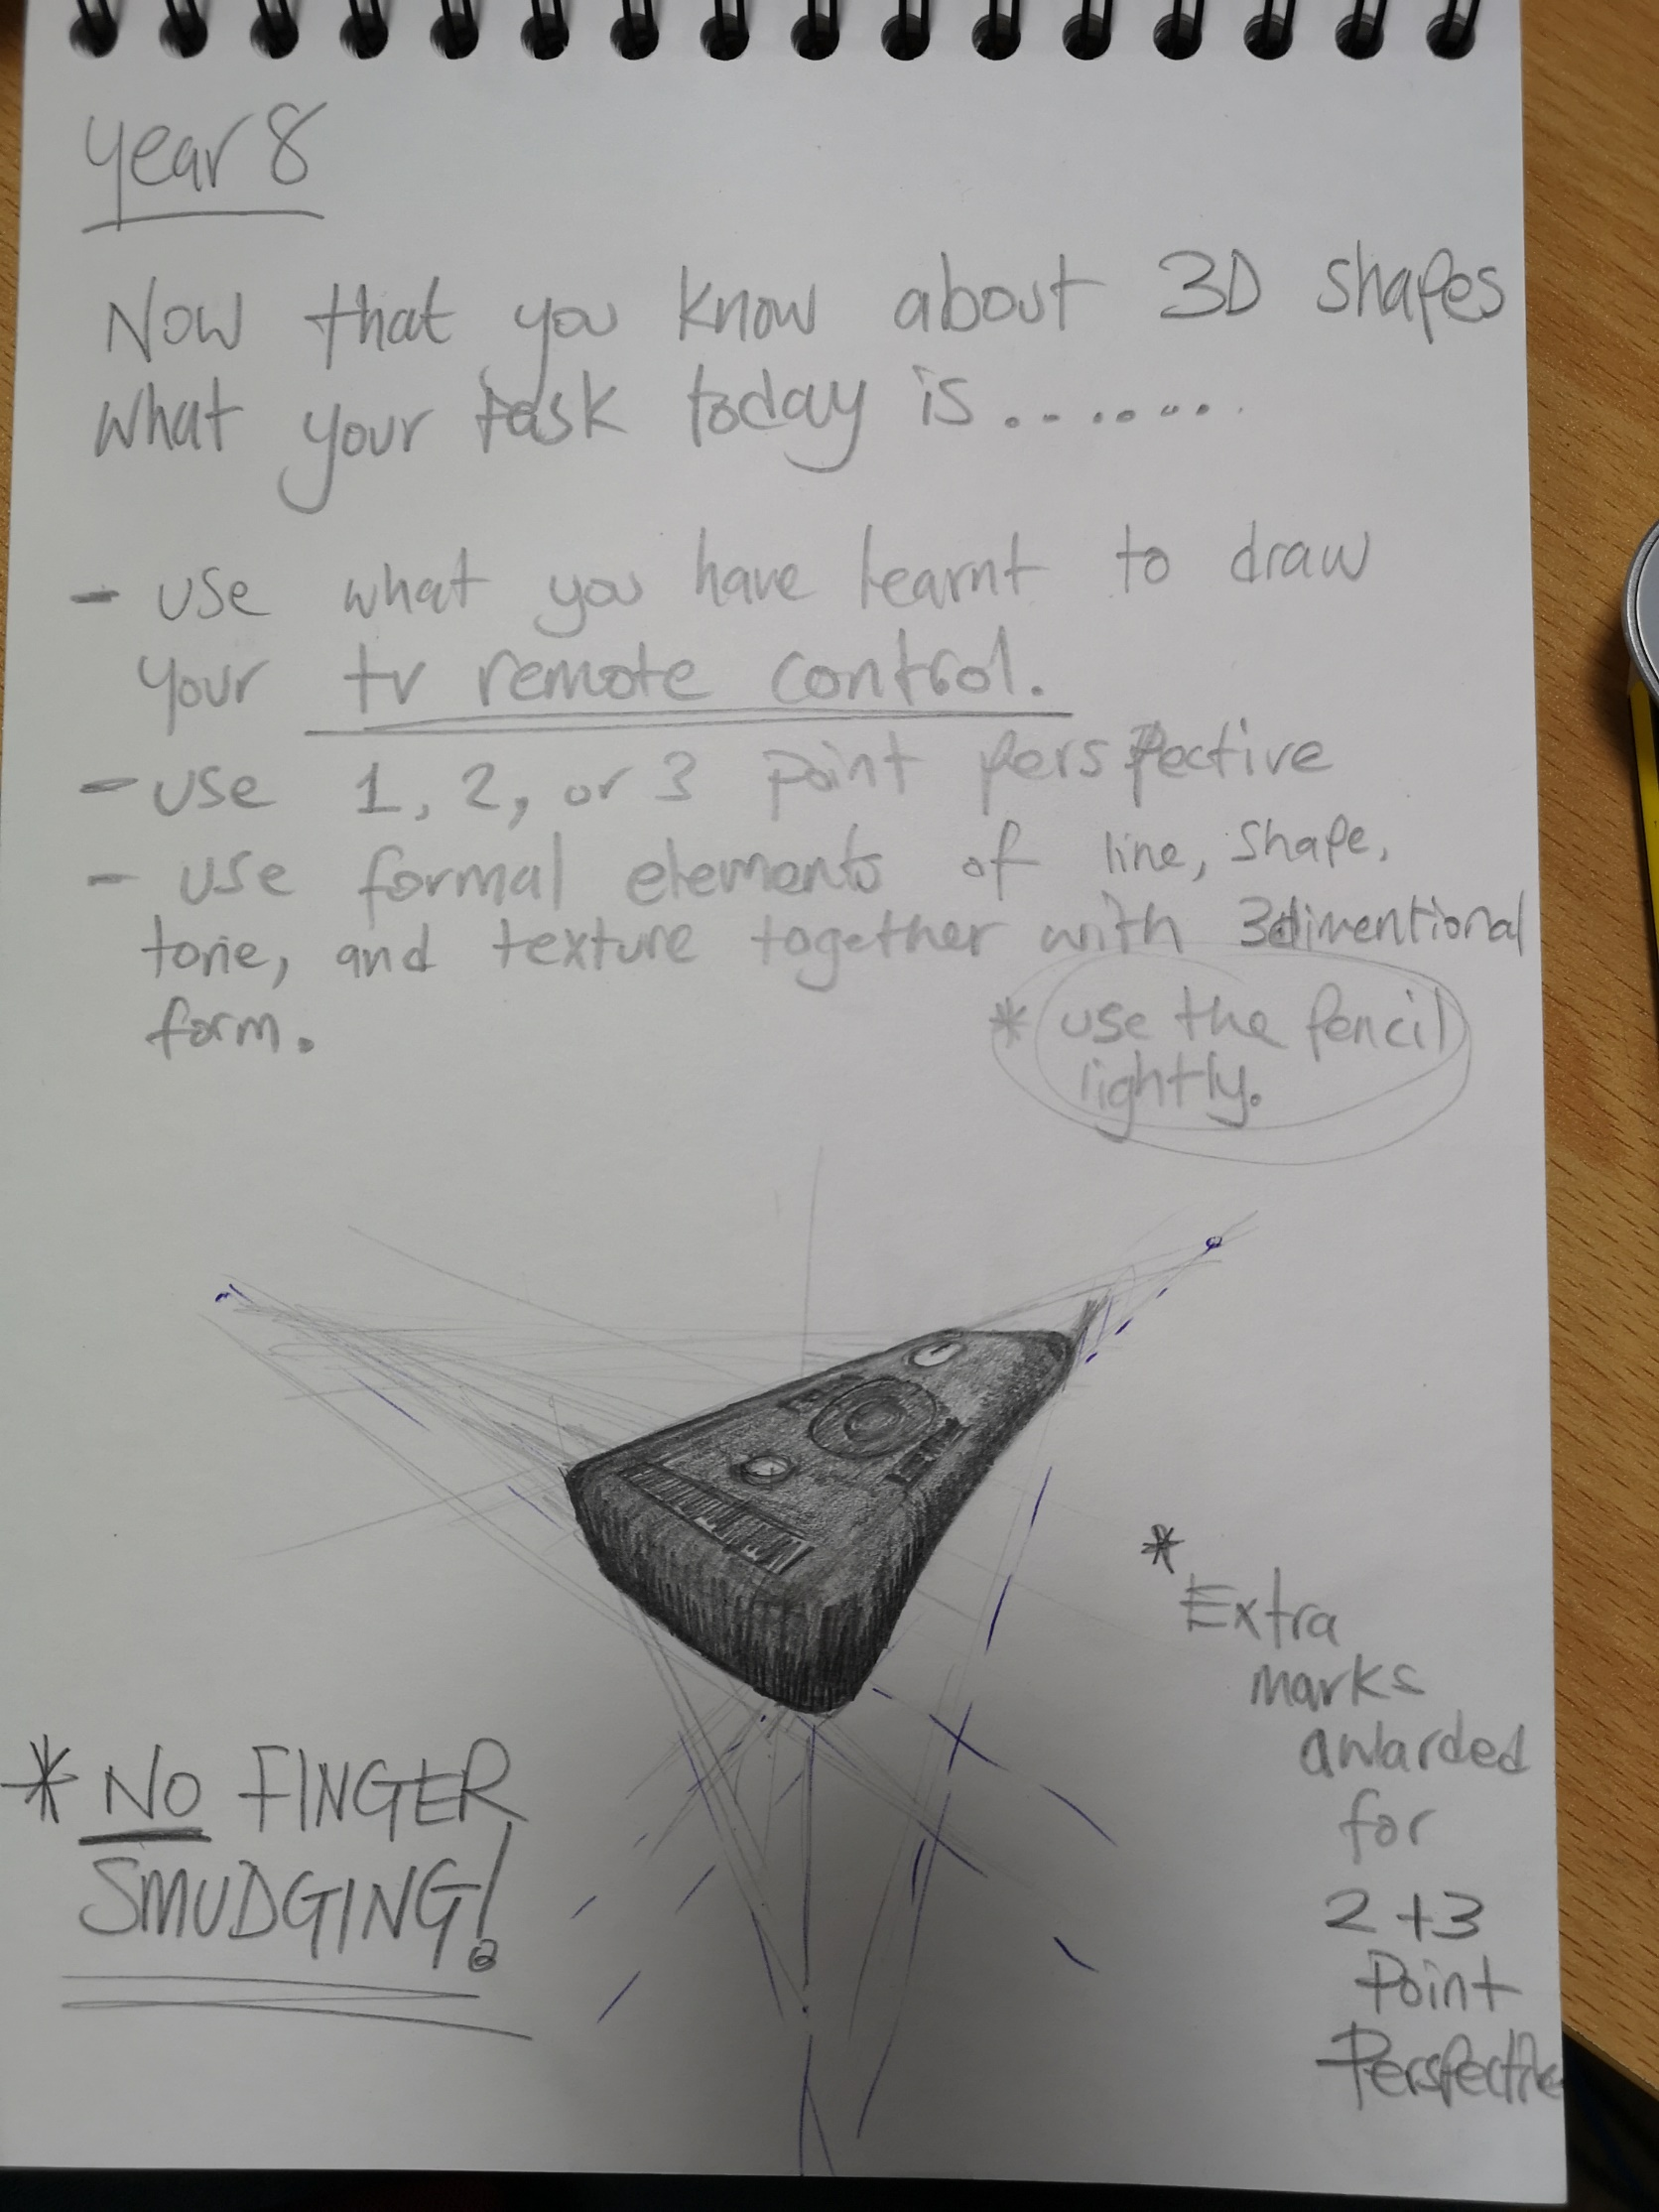 year 8
Now that you know about 3D shapes
what your task today is........
- use what you have learnt to draw
your tv remote control.
- use 1, 2, or 3 point perspective
- use formal elements of line, shape,
tone, and texture together with 3dimentional
form.
* use the pencil
lightly.
* Extra
marks
awarded
for
2+3
Point
Perspective
* NO FINGER
SMUDGING!